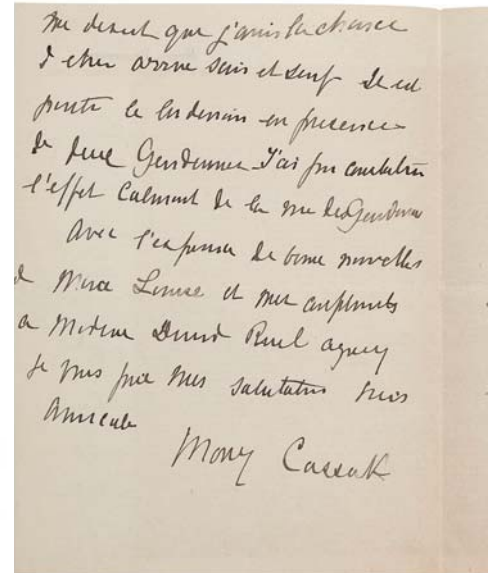 me disant que j'avais la chance
d'etre arrivé sain et sauf Il est
parti le lendemain en presence
de deux Gendarmes J'ai pu constater
l'effet calmant de la vue des Gendarmes
Avec l'esperance de bonne nouvelles
de Marie Louise et mes compliments
a Madame Durand Ruel agreez
je vous prie mes salutations
amicale
Mary Cassatt